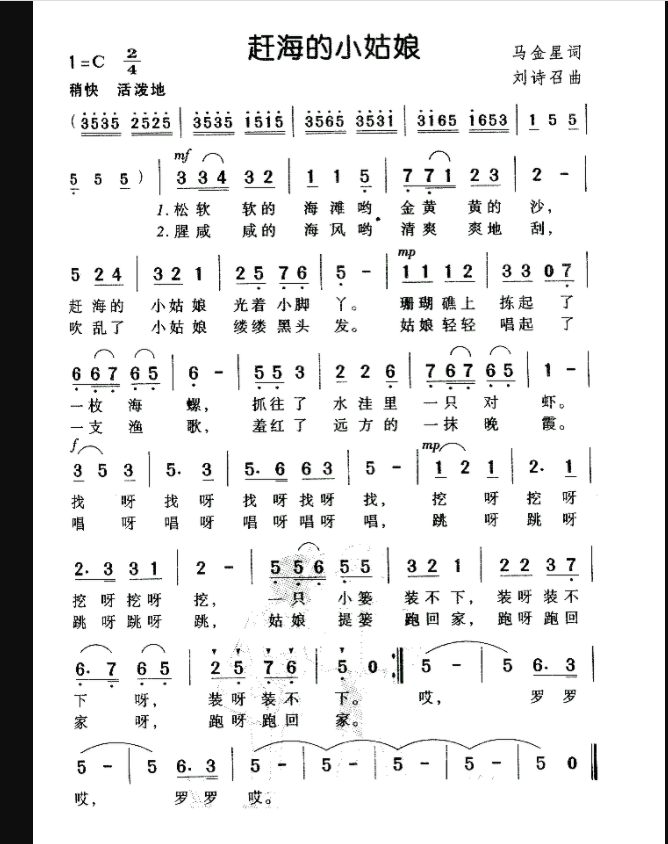 赶海的小姑娘
1=C 2/4
马金星词
刘诗召曲
稍快 活泼地
(3535 2525 | 3535 1515 | 3565 3531 | 3165 1653 | 1 5 5 |
mf
5 5 5 ) | 3 34 3 2 | 1 1 5 | 7 71 2 3 | 2 - |
1.松软 软的 海滩哟, 金黄 黄的 沙,
2.腥咸 咸的 海风哟, 清爽 爽地 刮,
mp
5 2 4 | 3 2 1 | 2 5 7 6 | 5 - | 1 1 1 2 | 3 3 0 7 |
赶海的 小姑娘 光着小脚 丫。 珊瑚礁上 拣起 了
吹乱了 小姑娘 缕缕黑头 发。 姑娘轻轻 唱起 了
6 67 6 5 | 6 - | 5 5 3 | 2 2 6 | 7 67 6 5 | 1 - |
一枚 海 螺, 抓往了 水洼里 一只 对 虾。
一支 渔 歌, 羞红了 远方的 一抹 晚 霞。
f mp
3 5 3 | 5. 3 | 5. 6 6 3 | 5 - | 1 2 1 | 2. 1 |
找 呀 找 呀 找 呀找呀 找, 挖 呀 挖 呀
唱 呀 唱 呀 唱 呀唱呀 唱, 跳 呀 跳 呀
2. 3 3 1 | 2 - | 5 56 5 5 | 3 2 1 | 2 2 3 7 |
挖 呀挖呀 挖, 一只 小篓 装不下, 装呀装不
跳 呀跳呀 跳, 姑娘 提篓 跑回家, 跑呀跑回
6. 7 6 5 | 2 5 7 6 | 5 0 :| 5 - | 5 6. 3 |
下 呀, 装呀装不 下。 哎, 罗罗
家 呀, 跑呀跑回 家。
5 - | 5 6. 3 | 5 - | 5 - | 5 - | 5 - | 5 0 ||
哎, 罗罗 哎。